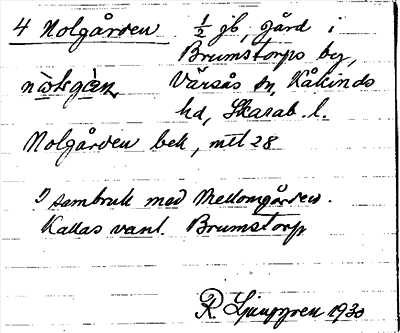 4 Nolgården ½ jb, gård i
Brumstorps by,
Värsås sn, Kåkinds
hd, Skarab. l.
Nolgården bek, mtl 28
I sambruk med Mellomgården.
Kallas vanl. Brumstorp
R. Ljunggren 1930